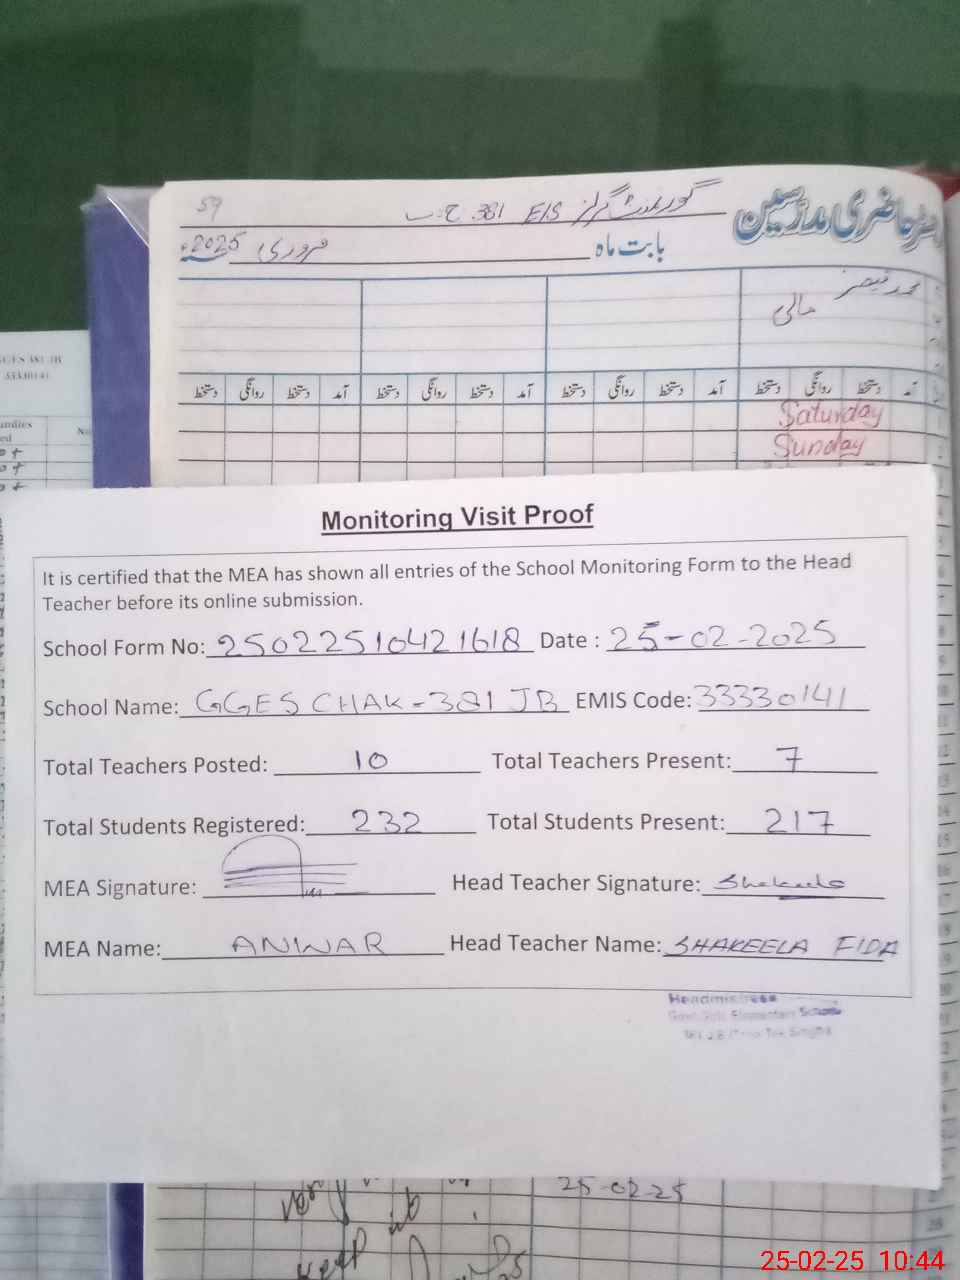 59
گورنمنٹ گرلز E/S 381 ج-ب
رجسٹر حاضری مدرسین
بابت ماہ فروری 2025ء
محمد قیصر
مالی
آمد دستخط روانگی دستخط آمد دستخط روانگی دستخط آمد دستخط روانگی دستخط آمد دستخط روانگی دستخط
Saturday
Sunday
33330141
Monitoring Visit Proof
It is certified that the MEA has shown all entries of the School Monitoring Form to the Head
Teacher before its online submission.
School Form No: 25022510421618 Date : 25-02-2025
School Name: GGES CHAK-381 JB EMIS Code: 33330141
Total Teachers Posted: 10 Total Teachers Present: 7
Total Students Registered: 232 Total Students Present: 217
MEA Signature: Head Teacher Signature: Shakeela
MEA Name: ANWAR Head Teacher Name: SHAKEELA FIDA
Headmistress
Govt. Girls Elementary School
25-02-25
keep
25-02-25 10:44